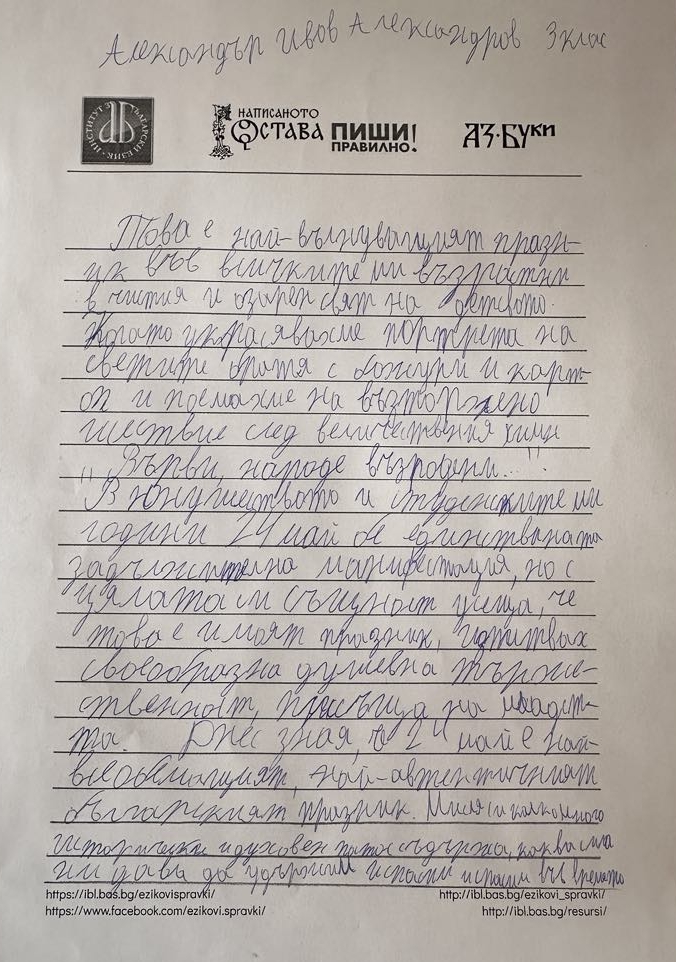 Александър Ивов Александров 3 клас
ИНСТИТУТ ЗА БЪЛГАРСКИ ЕЗИК
НАПИСАНОТО
ОСТАВА ПИШИ!
ПРАВИЛНО!
АЗ·БУКИ
Това е най-вълнуващият празн-
ик във всичките ми възрастни
в чистия и озарен свят на детството.
Когато украсявахме портрета на
светите братя с божури и карт-
он и поемахме на възторжено
шествие след величествения химн
"Върви, народе възродени..."
В юношеството и студентските ми
години 24 май бе единствената
задължителна манифестация, но с
цялата си същност усеща, че
това е и моят празник, изпитвах
своеобразна душевна търже-
ственост, присъща на младост-
та. Днес зная, че 24 май е най-
всеобхващият, най-автентичният
българският празник. Мисля си колко много
исторически и духовен патос съдържа, каква сила
ни дава да удържим и спасим във времето
https://ibl.bas.bg/ezikovispravki/ http://ibl.bas.bg/ezikovi_spravki/
https://www.facebook.com/ezikovi.spravki/ http://ibl.bas.bg/resursi/